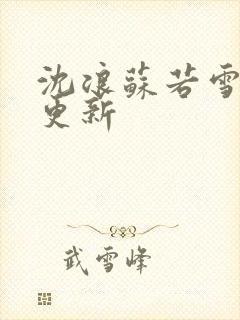 沈浪蘇若雪
更新
武雪峰